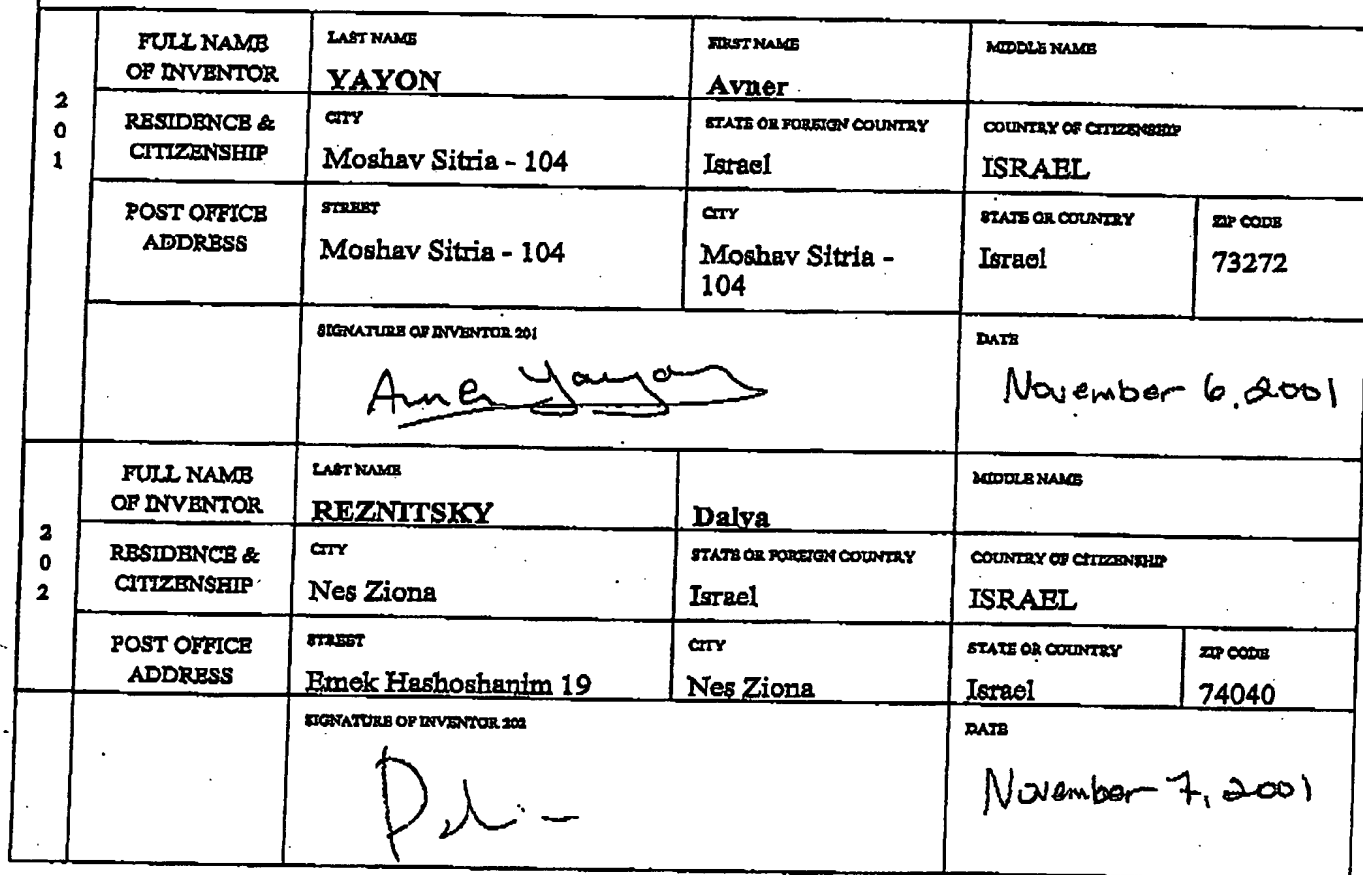 FULL NAME OF INVENTOR
LAST NAME
YAYON
FIRST NAME
Avner
MIDDLE NAME
201
RESIDENCE & CITIZENSHIP
CITY
Moshav Sitria - 104
STATE OR FOREIGN COUNTRY
Israel
COUNTRY OF CITIZENSHIP
ISRAEL
POST OFFICE ADDRESS
STREET
Moshav Sitria - 104
CITY
Moshav Sitria -
104
STATE OR COUNTRY
Israel
ZIP CODE
73272
SIGNATURE OF INVENTOR 201
Avner Yayon
DATE
November 6, 2001
FULL NAME OF INVENTOR
LAST NAME
REZNITSKY
Dalya
MIDDLE NAME
202
RESIDENCE & CITIZENSHIP
CITY
Nes Ziona
STATE OR FOREIGN COUNTRY
Israel
COUNTRY OF CITIZENSHIP
ISRAEL
POST OFFICE ADDRESS
STREET
Emek Hashoshanim 19
CITY
Nes Ziona
STATE OR COUNTRY
Israel
ZIP CODE
74040
SIGNATURE OF INVENTOR 202
DATE
November 7, 2001